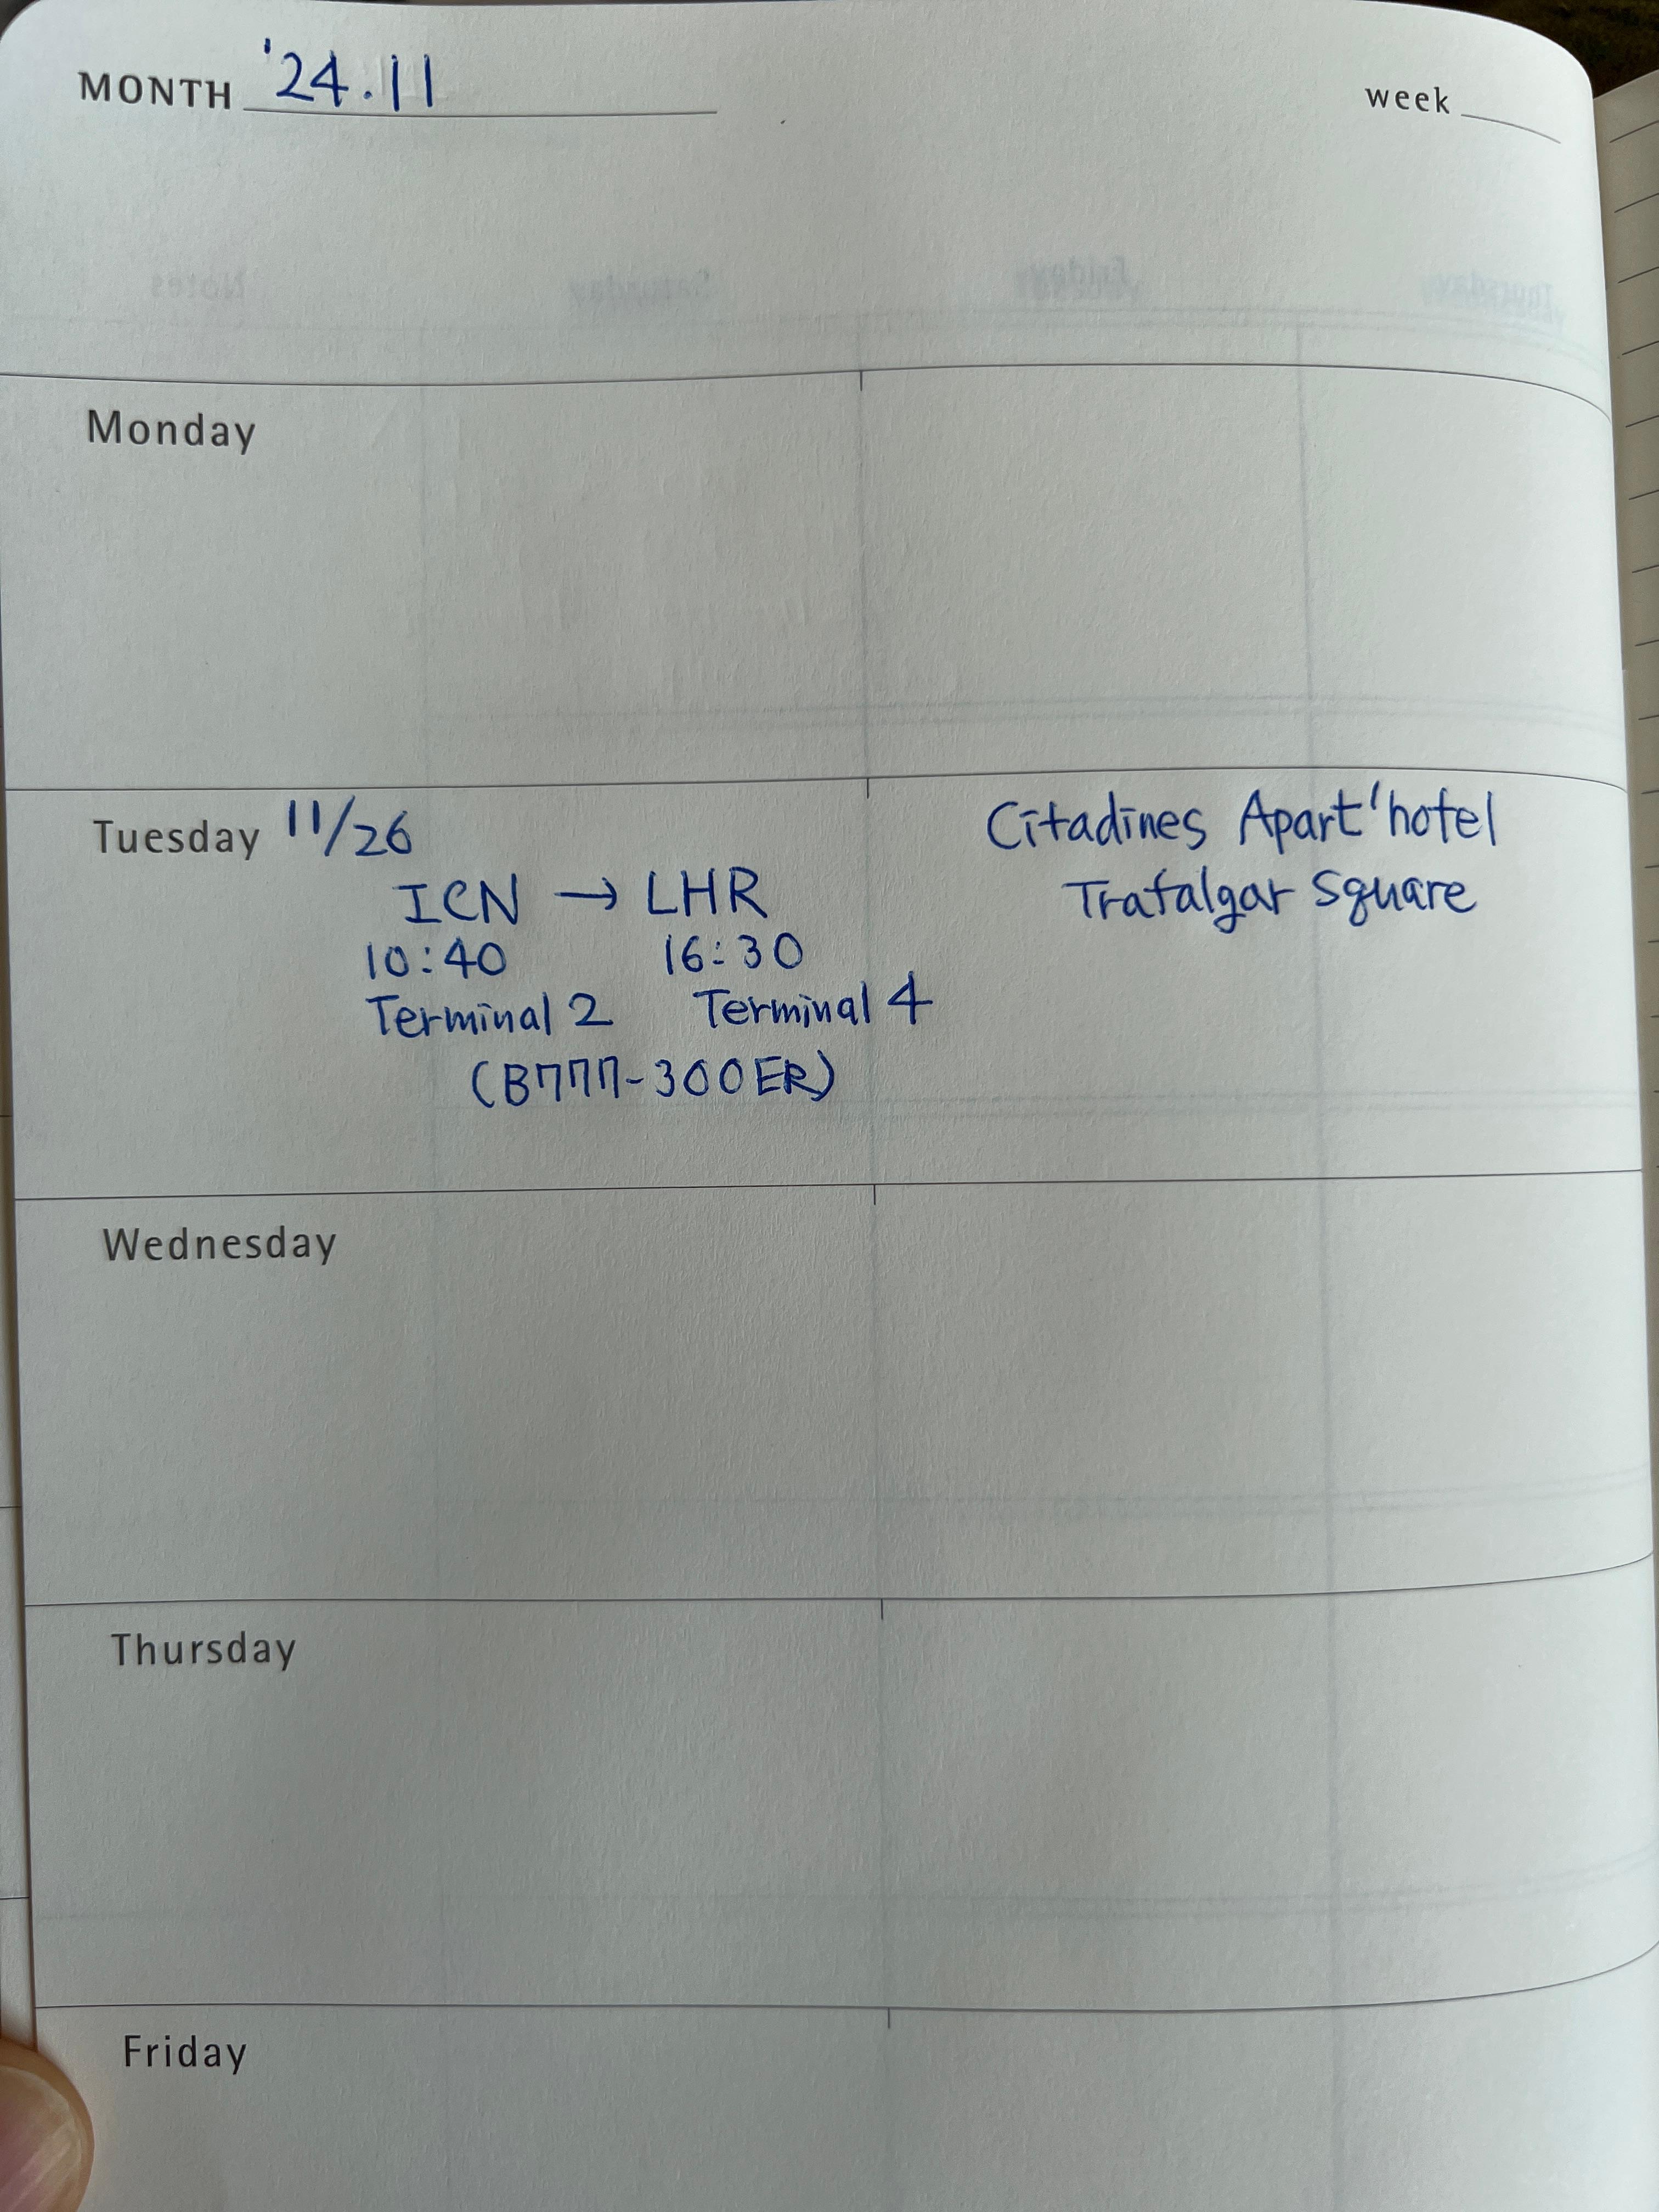 MONTH '24.11
week
Monday
Tuesday 11/26
ICN → LHR
10:40 16:30
Terminal 2 Terminal 4
(B777-300ER)
Citadines Apart'hotel
Trafalgar Square
Wednesday
Thursday
Friday
Notes
Saturday
Friday
Thursday